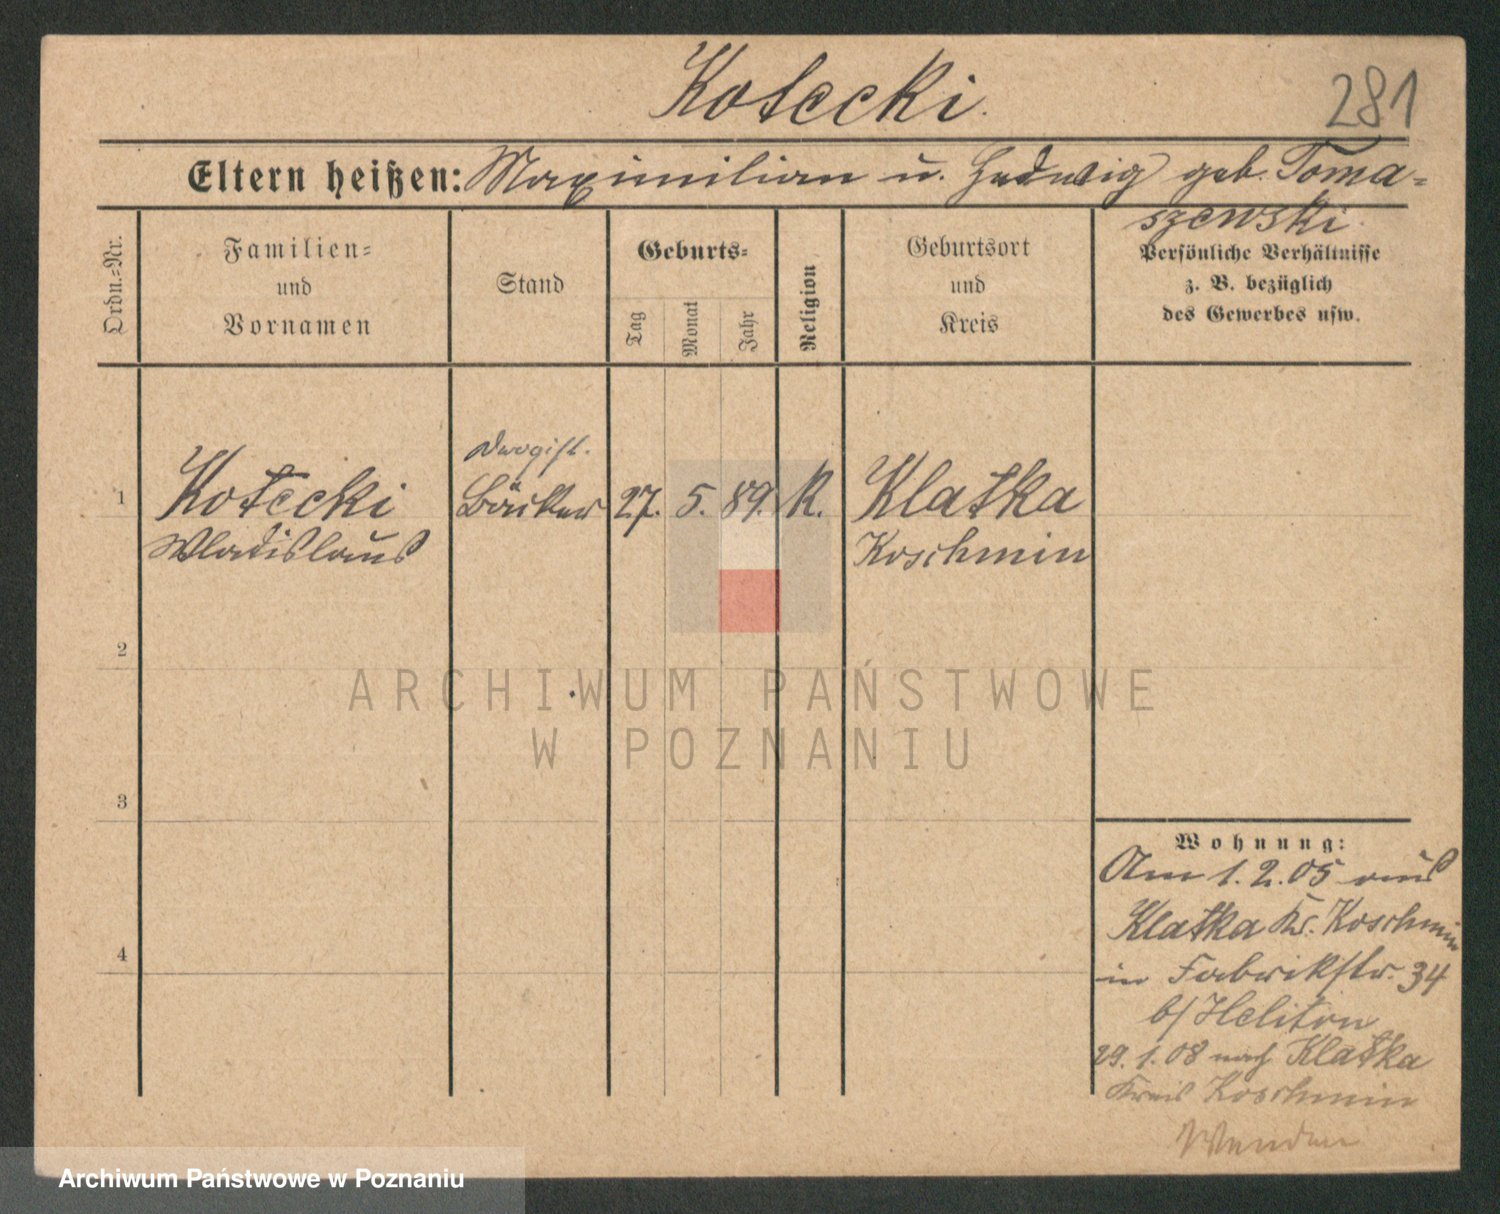 Kotecki.
281
Eltern heißen: Maximilian u. Hedwig geb. Toma-
szewski.
Ordn.-Nr.
Familien-
und
Vornamen
Stand
Geburts-
Tag
Monat
Jahr
Religion
Geburtsort
und
Kreis
Persönliche Verhältnisse
z. B. bezüglich
des Gewerbes usw.
Drogist.
1 Kotecki Bäcker 27. 5. 89. K. Klatka
Wladislaus Koschmin
2
3
4
ARCHIWUM PAŃSTWOWE
W POZNANIU
Wohnung:
Am 1. 2. 05 aus
Klatka Kr. Koschmin
in Fabrikstr. 34
b/ Heliton
29. 1. 08 nach Klatka
Kreis Koschmin
Wenden
Archiwum Państwowe w Poznaniu